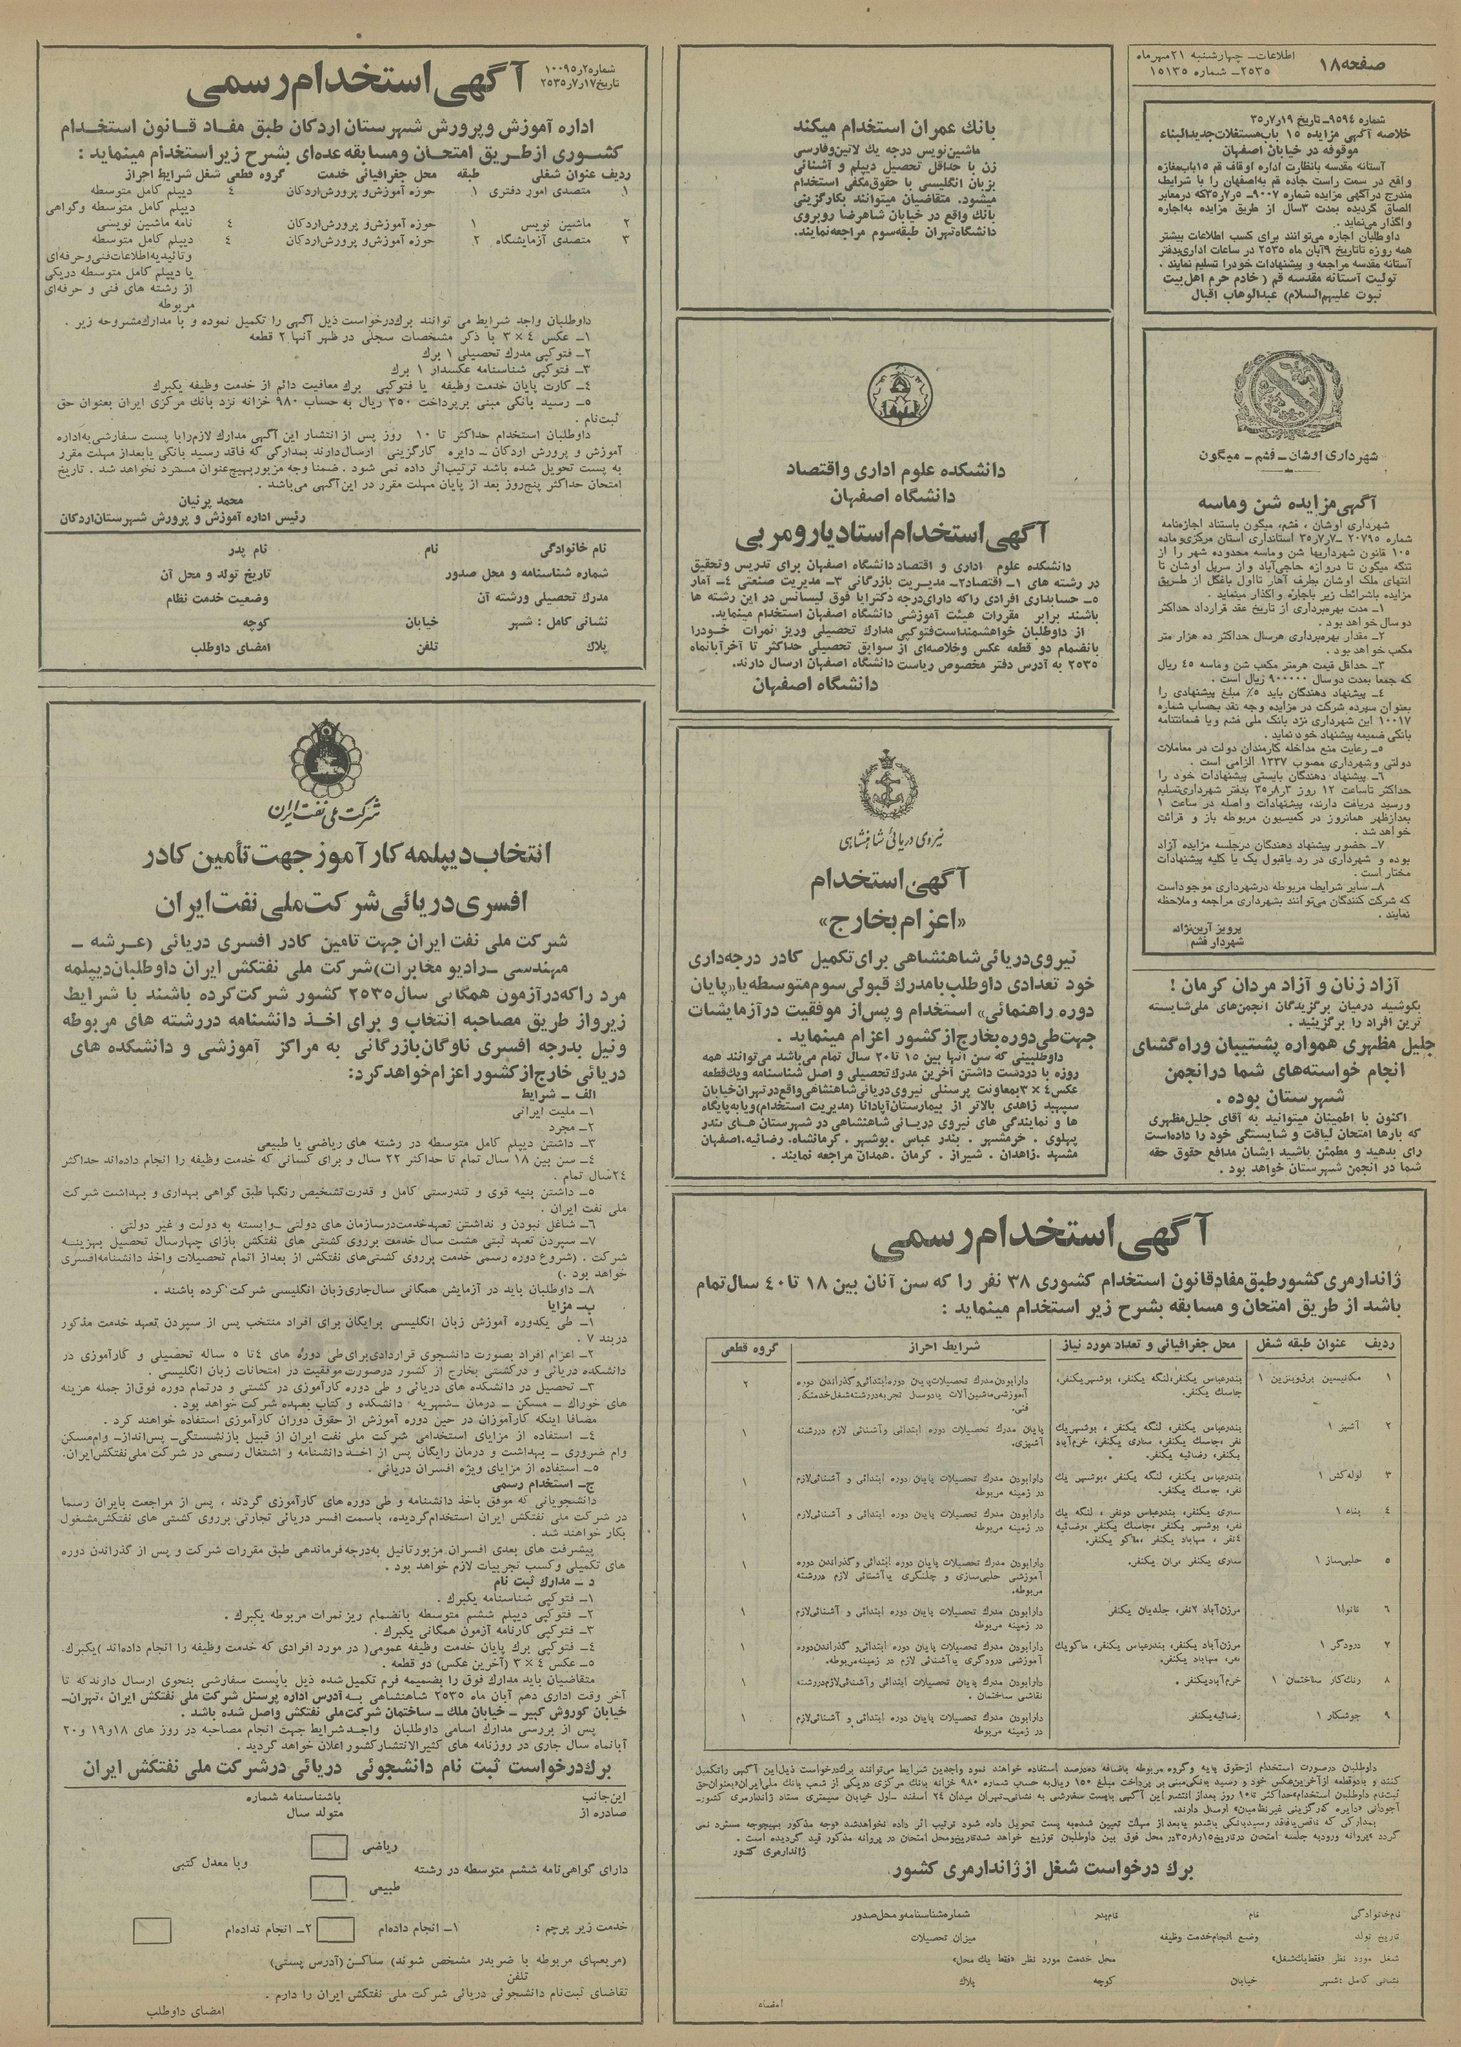 صفحه ۱۸
اطلاعات ــ چهارشنبه ۲۱ مهر ماه
۲۵۳۵ ــ شماره ۱۵۱۳۵
شماره ۹۵۹۴ ــ تاریخ ۳۵/۷/۱۹
خلاصه آگهی مزایده ۱۵ باب مستغلات جدیدالبناء
موقوفه در خیابان اصفهان
آستانه مقدسه بانظارت اداره اوقاف قم ۱۵ باب مغازه
واقع در سمت راست جاده قم به اصفهان را با شرایط
مندرج در آگهی مزایده شماره ۹۰۰۷ ــ ۳۵/۷/۵ که در معابر
الصاق گردیده بمدت ۳ سال از طریق مزایده به اجاره
واگذار می‌نماید .
داوطلبان اجاره می‌توانند برای کسب اطلاعات بیشتر
همه روزه تا تاریخ ۹ آبان ماه ۲۵۳۵ در ساعات اداری بدفتر
آستانه مقدسه مراجعه و پیشنهادات خود را تسلیم نمایند .
تولیت آستانه مقدسه قم ( خادم حرم اهل بیت
نبوت علیهم السلام) عبدالوهاب اقبال
شهرداری اوشان ــ فشم ــ میگون
آگهی مزایده شن و ماسه
شهرداری اوشان ، فشم، میگون باستناد اجازه‌نامه
شماره ۲۰۷۹۵ ــ ۳۵/۷/۷ استانداری استان مرکزی و ماده
۱۰۵ قانون شهرداریها شن و ماسه محدوده شهر را از
تنگه میگون تا دروازه حاجی‌آباد و از سرپل اوشان تا
انتهای ملک اوشان بطرف آهار تا اول باغگل از طریق
مزایده باشرائط زیر باجاره واگذار مینماید .
۱ــ مدت بهره‌برداری از تاریخ عقد قرارداد حداکثر
دو سال خواهد بود .
۲ــ مقدار بهره‌برداری هرسال حداکثر ده هزار متر
مکعب خواهد بود .
۳ــ حداقل قیمت هرمتر مکعب شن و ماسه ۴۵ ریال
که جمعا بمدت دو سال ۹۰۰۰۰۰ ریال است .
۴ــ پیشنهاد دهندگان باید ۵٪ مبلغ پیشنهادی را
بعنوان سپرده شرکت در مزایده وجه نقد بحساب شماره
۱۰۰۱۷ این شهرداری نزد بانک ملی فشم و یا ضمانتنامه
بانکی ضمیمه پیشنهاد خود نماید .
۵ــ رعایت منع مداخله کارمندان دولت در معاملات
دولتی و شهرداری مصوب ۱۳۳۷ الزامی است .
۶ــ پیشنهاد دهندگان بایستی پیشنهادات خود را
حداکثر تا ساعت ۱۲ روز ۳۵/۸/۳ بدفتر شهرداری تسلیم
و رسید دریافت دارند، پیشنهادات واصله در ساعت ۱
بعدازظهر همانروز در کمیسیون مربوطه باز و قرائت
خواهد شد .
۷ــ حضور پیشنهاد دهندگان درجلسه مزایده آزاد
بوده و شهرداری در رد یاقبول یک یا کلیه پیشنهادات
مختار است .
۸ــ سایر شرایط مربوطه درشهرداری موجود است
که شرکت کنندگان می‌توانند بشهرداری مراجعه و ملاحظه
نمایند .
پرویز آرین‌نژاد
شهردار فشم
آزاد زنان و آزاد مردان کرمان !
بکوشید درمیان برگزیدگان انجمن‌های ملی شایسته
ترین افراد را برگزینید .
جلیل مظهری همواره پشتیبان و راه گشای
انجام خواسته‌های شما در انجمن
شهرستان بوده .
اکنون با اطمینان میتوانید به آقای جلیل مظهری
که بارها امتحان لیاقت و شایستگی خود را داده است
رای بدهید و مطمئن باشید ایشان مدافع حقوق حقه
شما در انجمن شهرستان خواهد بود .
بانک عمران استخدام میکند
ماشین‌نویس درجه یک لاتین و فارسی
زن با حداقل تحصیل دیپلم و آشنائی
بزبان انگلیسی با حقوق مکفی استخدام
میشود. متقاضیان میتوانند بکارگزینی
بانک واقع در خیابان شاهرضا روبروی
دانشگاه تهران طبقه سوم مراجعه نمایند.
دانشکده علوم اداری و اقتصاد
دانشگاه اصفهان
آگهی استخدام استادیار و مربی
دانشکده علوم اداری و اقتصاد دانشگاه اصفهان برای تدریس و تحقیق
در رشته های ۱ــ اقتصاد ۲ــ مدیریت بازرگانی ۳ــ مدیریت صنعتی ۴ــ آمار
۵ــ حسابداری افرادی را که دارای درجه دکترا یا فوق لیسانس در این رشته ها
باشند برابر مقررات هیئت آموزشی دانشگاه اصفهان استخدام مینماید.
از داوطلبان خواهشمند است فتوکپی مدارک تحصیلی و ریز نمرات خود را
بانضمام دو قطعه عکس و خلاصه‌ای از سوابق تحصیلی حداکثر تا آخر آبانماه
۲۵۳۵ به آدرس دفتر مخصوص ریاست دانشگاه اصفهان ارسال دارند.
دانشگاه اصفهان
نیروی دریائی شاهنشاهی
آگهی استخدام
«اعزام بخارج»
نیروی دریائی شاهنشاهی برای تکمیل کادر درجه‌داری
خود تعدادی داوطلب با مدرک قبولی سوم متوسطه یا «پایان
دوره راهنمائی» استخدام و پس از موفقیت در آزمایشات
جهت طی دوره بخارج از کشور اعزام مینماید .
داوطلبینی که سن آنها بین ۱۵ تا ۲۰ سال تمام می‌باشد می‌توانند همه
روزه با دردست داشتن آخرین مدرک تحصیلی و اصل شناسنامه و یک قطعه
عکس ۴×۳ بمعاونت پرسنلی نیروی دریائی شاهنشاهی واقع در تهران خیابان
سپهبد زاهدی بالاتر از بیمارستان آپادانا (مدیریت استخدام) و یا به پایگاه
ها و نمایندگی های نیروی دریائی شاهنشاهی در شهرستان های بندر
پهلوی . خرمشهر . بندر عباس . بوشهر . کرمانشاه . رضائیه . اصفهان
مشهد . زاهدان . شیراز . کرمان . همدان مراجعه نمایند .
آگهی استخدام رسمی
ژاندارمری کشور طبق مفاد قانون استخدام کشوری ۳۸ نفر را که سن آنان بین ۱۸ تا ۴۰ سال تمام
باشد از طریق امتحان و مسابقه بشرح زیر استخدام مینماید :
ردیف عنوان طبقه شغل محل جغرافیائی و تعداد مورد نیاز شرایط احراز گروه قطعی
۱ مکانیسین برق و بنزین ۱ بندرعباس یکنفر، لنگه یکنفر، بوشهر یکنفر، جاسک یکنفر. دارابودن مدرک تحصیلات پایان دوره ابتدائی و گذراندن دوره آموزشی ماشین‌آلات یا دو سال تجربه در رشته شغل خدمتکار فنی. ۲
۲ آشپز ۱ بندرعباس یکنفر، لنگه یکنفر، بوشهر یک نفر، جاسک یکنفر، ساری یکنفر، خرم‌آباد یکنفر، رضائیه یکنفر. پایان مدرک تحصیلات دوره ابتدائی و آشنائی لازم در رشته آشپزی. ۱
۳ لوله‌کش ۱ بندرعباس یکنفر، لنگه یکنفر، بوشهر یک نفر، جاسک یکنفر. دارابودن مدرک تحصیلات پایان دوره ابتدائی و آشنائی لازم در زمینه مربوطه ۱
۴ بناء ۱ ساری یکنفر، بندرعباس دونفر، لنگه یک نفر، بوشهر یکنفر، جاسک یکنفر، رضائیه ۴ نفر، مهاباد یکنفر، ماکو یکنفر. دارابودن مدرک تحصیلات پایان دوره ابتدائی و آشنائی لازم در زمینه مربوطه ۱
۵ حلبی‌ساز ۱ ساری یکنفر یکنفر. دارابودن مدرک تحصیلات پایان دوره ابتدائی و گذراندن دوره آموزشی حلبی‌سازی و چلنگری یا آشنائی لازم در رشته مربوطه. ۱
۶ نانوا ۱ مرزن‌آباد ۲ نفر، جلدیان یکنفر دارابودن مدرک تحصیلات پایان دوره ابتدائی و آشنائی لازم در زمینه مربوطه ۱
۷ درودگر ۱ مرزن‌آباد یکنفر، بندرعباس یکنفر، ماکو یک نفر، مهاباد یکنفر. دارابودن مدرک تحصیلات پایان دوره ابتدائی و گذراندن دوره آموزشی درودگری یا آشنائی لازم در زمینه مربوطه. ۱
۸ رنگ کار ساختمان ۱ خرم‌آباد یکنفر . دارابودن مدرک تحصیلات پایان دوره ابتدائی و آشنائی لازم در رشته نقاشی ساختمان . ۱
۹ جوشکار ۱ رضائیه یکنفر دارابودن مدرک تحصیلات پایان دوره ابتدائی و آشنائی لازم در زمینه مربوطه ۱
داوطلبان درصورت استخدام از حقوق پایه و گروه مربوطه باضافه استفاده خواهند نمود واجدین شرایط می‌توانند برک درخواست ذیل این آگهی را تکمیل
کنند و با دو قطعه از آخرین عکس خود و رسید بانکی مبنی بر پرداخت مبلغ ۱۵۰ ریال به حساب شماره ۹۸۰ خزانه بانک مرکزی در یکی از شعب بانک ملی ایران «بعنوان حق
ثبت‌نام داوطلبان استخدام» حداکثر تا ۱۰ روز بعد از انتشار این آگهی با پست سفارشی به نشانی ــ تهران میدان ۲۴ اسفند ــ اول خیابان سیمتری ستاد ژاندارمری کشور ــ
آجودانی «دایره کارگزینی غیرنظامیان» ارسال دارند.
بمدارکی که ناقص یا فاقد رسید بانکی باشد و یا بعد از مهلت تعیین شده به پست تحویل داده شود ترتیب اثر داده نخواهد شد «وجه مذکور بهیچوجه مسترد نمی
گردد» پروانه ورود به جلسه امتحان در تاریخ ۳۵/۸/۱۵ در محل فوق بین داوطلبان توزیع خواهد شد تاریخ و محل امتحان در پروانه مذکور قید گردیده است .
ژاندارمری کشور
برک درخواست شغل از ژاندارمری کشور.
نام خانوادگی نام نام پدر شماره شناسنامه و محل صدور
تاریخ تولد وضع انجام خدمت وظیفه میزان تحصیلات
شغل مورد نظر «فقط یک شغل» محل خدمت مورد نظر «فقط یک محل»
نشانی کامل : شهر خیابان کوچه پلاک
امضاء
شماره ۱۰۰۹۵/۲
تاریخ ۲۵۳۵/۷/۱۷
آگهی استخدام رسمی
اداره آموزش و پرورش شهرستان اردکان طبق مفاد قانون استخدام
کشوری از طریق امتحان و مسابقه عده‌ای بشرح زیر استخدام مینماید :
ردیف عنوان شغلی طبقه محل جغرافیائی خدمت گروه قطعی شغل شرایط احراز
۱ متصدی امور دفتری ۱ حوزه آموزش و پرورش اردکان ۴ دیپلم کامل متوسطه
دیپلم کامل متوسطه و گواهی
۲ ماشین نویس ۱ حوزه آموزش و پرورش اردکان ۴ نامه ماشین نویسی
۳ متصدی آزمایشگاه ۲ حوزه آموزش و پرورش اردکان ۴ دیپلم کامل متوسطه
و تائیدیه اطلاعات فنی و حرفه‌ای
یا دیپلم کامل متوسطه در یکی
از رشته های فنی و حرفه‌ای
مربوطه
داوطلبان واجد شرایط می توانند برک درخواست ذیل آگهی را تکمیل نموده و با مدارک مشروحه زیر .
۱ــ عکس ۴×۳ با ذکر مشخصات سجلی در ظهر آنها ۲ قطعه
۲ــ فتوکپی مدرک تحصیلی ۱ برک
۳ــ فتوکپی شناسنامه عکسدار ۱ برک
۴ــ کارت پایان خدمت وظیفه یا فتوکپی برک معافیت دائم از خدمت وظیفه یکبرک
۵ــ رسید بانکی مبنی بر پرداخت ۳۵۰ ریال به حساب ۹۸۰ خزانه نزد بانک مرکزی ایران بعنوان حق
ثبت نام .
داوطلبان استخدام حداکثر تا ۱۰ روز پس از انتشار این آگهی مدارک لازم را با پست سفارشی به اداره
آموزش و پرورش اردکان ــ دایره کارگزینی ارسال دارند بمدارکی که فاقد رسید بانکی یا بعد از مهلت مقرر
به پست تحویل شده باشد ترتیب اثر داده نمی شود . ضمنا وجه مزبور بهیچ عنوان مسترد نخواهد شد . تاریخ
امتحان حداکثر پنج روز بعد از پایان مهلت مقرر در این آگهی می‌باشد .
محمد پرنیان
رئیس اداره آموزش و پرورش شهرستان اردکان
نام خانوادگی نام نام پدر
شماره شناسنامه و محل صدور تاریخ تولد و محل آن
مدرک تحصیلی و رشته آن وضعیت خدمت نظام
نشانی کامل : شهر خیابان کوچه
پلاک تلفن امضای داوطلب
شرکت ملی نفت ایران
انتخاب دیپلمه کارآموز جهت تأمین کادر
افسری دریائی شرکت ملی نفت ایران
شرکت ملی نفت ایران جهت تامین کادر افسری دریائی (عرشه ــ
مهندسی ــ رادیو مخابرات) شرکت ملی نفتکش ایران داوطلبان دیپلمه
مرد را که در آزمون همگانی سال ۲۵۳۵ کشور شرکت کرده باشند با شرایط
زیر و از طریق مصاحبه انتخاب و برای اخذ دانشنامه در رشته های مربوطه
و نیل بدرجه افسری ناوگان بازرگانی به مراکز آموزشی و دانشکده های
دریائی خارج از کشور اعزام خواهد کرد:
الف ــ شرایط
۱ــ ملیت ایرانی
۲ــ مجرد
۳ــ داشتن دیپلم کامل متوسطه در رشته های ریاضی یا طبیعی
۴ــ سن بین ۱۸ سال تمام تا حداکثر ۲۲ سال و برای کسانی که خدمت وظیفه را انجام داده‌اند حداکثر
۲۴ سال تمام .
۵ــ داشتن بنیه قوی و تندرستی کامل و قدرت تشخیص رنگها طبق گواهی بهداری و بهداشت شرکت
ملی نفت ایران .
۶ــ شاغل نبودن و نداشتن تعهد خدمت در سازمان های دولتی ــ وابسته به دولت و غیر دولتی .
۷ــ سپردن تعهد ثبتی هشت سال خدمت برروی کشتی های نفتکش بازای چهار سال تحصیل بهزینه
شرکت . (شروع دوره رسمی خدمت برروی کشتی‌های نفتکش از بعد از اتمام تحصیلات و اخذ دانشنامه افسری
خواهد بود .)
۸ــ داوطلبان باید در آزمایش همگانی سال جاری زبان انگلیسی شرکت کرده باشند .
ب ــ مزایا
۱ــ طی یکدوره آموزش زبان انگلیسی برایگان برای افراد منتخب پس از سپردن تعهد خدمت مذکور
در بند ۷ .
۲ــ اعزام افراد بصورت دانشجوی قراردادی برای طی دوره های ۴ تا ۵ ساله تحصیلی و کارآموزی در
دانشکده دریائی و در کشتی بخارج از کشور درصورت موفقیت در امتحانات زبان انگلیسی .
۳ــ تحصیل در دانشکده های دریائی و طی دوره کارآموزی در کشتی و در تمام دوره فوق از جمله هزینه
های خوراک ــ مسکن ــ درمان ــ شهریه دانشکده و کتاب بعهده شرکت خواهد بود .
مضافا اینکه کارآموزان در حین دوره آموزش از حقوق دوران کارآموزی استفاده خواهند کرد .
۴ــ استفاده از مزایای استخدامی شرکت ملی نفت ایران از قبیل بازنشستگی ــ پس‌انداز ــ وام مسکن
وام ضروری ــ بهداشت و درمان رایگان پس از اخذ دانشنامه و اشتغال رسمی در شرکت ملی نفتکش ایران.
۵ــ استفاده از مزایای ویژه افسران دریائی .
ج ــ استخدام رسمی
دانشجویانی که موفق باخذ دانشنامه و طی دوره های کارآموزی گردند ، پس از مراجعت بایران رسما
در شرکت ملی نفتکش ایران استخدام گردیده، باسمت افسر دریائی تجارتی برروی کشتی های نفتکش مشغول
بکار خواهند شد .
پیشرفت های بعدی افسران مزبور تا نیل به درجه فرماندهی طبق مقررات شرکت و پس از گذراندن دوره
های تکمیلی و کسب تجربیات لازم خواهد بود .
د ــ مدارک ثبت نام
۱ــ فتوکپی شناسنامه یکبرک .
۲ــ فتوکپی دیپلم ششم متوسطه بانضمام ریز نمرات مربوطه یکبرک .
۳ــ فتوکپی کارنامه آزمون همگانی یکبرک .
۴ــ فتوکپی برک پایان خدمت وظیفه عمومی( در مورد افرادی که خدمت وظیفه را انجام داده‌اند )یکبرک.
۵ــ عکس ۴×۳ (آخرین عکس) دو قطعه .
متقاضیان باید مدارک فوق را بضمیمه فرم تکمیل شده ذیل با پست سفارشی بنحوی ارسال دارند که تا
آخر وقت اداری دهم آبان ماه ۲۵۳۵ شاهنشاهی به آدرس اداره پرسنل شرکت ملی نفتکش ایران ، تهران ــ
خیابان کوروش کبیر ــ خیابان ملک ــ ساختمان شرکت ملی نفتکش واصل شده باشد .
پس از بررسی مدارک اسامی داوطلبان واجد شرایط جهت انجام مصاحبه در روز های ۱۸ و ۱۹ و ۲۰
آبانماه سال جاری در روزنامه های کثیرالانتشار کشور اعلان خواهد گردید .
برک درخواست ثبت نام دانشجوئی دریائی در شرکت ملی نفتکش ایران
این جانب باشناسنامه شماره
صادره از متولد سال
ریاضی
دارای گواهی‌نامه ششم متوسطه در رشته و با معدل کتبی
طبیعی
خدمت زیر پرچم : ۱ــ انجام داده‌ام ۲ــ انجام نداده‌ام
(مربعهای مربوطه با ضربدر مشخص شوند) ساکن (آدرس پستی)
تلفن
تقاضای ثبت‌نام دانشجوئی دریائی شرکت ملی نفتکش ایران را دارم .
امضای داوطلب